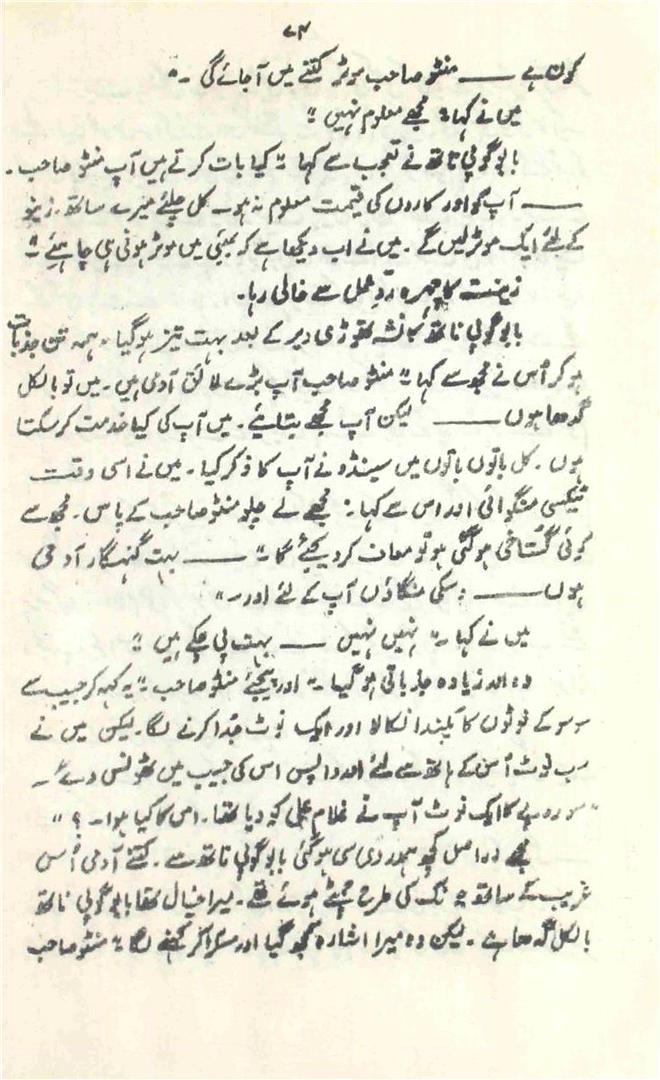 ۷۴
کون ہے —— منٹو صاحب موٹر کتنے میں آجائے گی ۔"
میں نے کہا " مجھے معلوم نہیں "
بابو گوپی ناتھ نے تعجب سے کہا " کیا بات کرتے ہیں آپ منٹو صاحب ۔
—— آپ کو اور کاروں کی قیمت معلوم نہ ہو ۔ کل چلئے میرے ساتھ ۔ زینو
کے لئے ایک موٹر لیں گے ۔ میں نے اب دیکھا ہے کہ بمبئی میں موٹر ہونی ہی چاہیئے "
زینت کا چہرہ ردِّ عمل سے خالی رہا ۔
بابو گوپی ناتھ کا نشہ تھوڑی دیر کے بعد بہت تیز ہو گیا ۔ ہمہ تن جذبات
ہو کر اُس نے مجھ سے کہا " منٹو صاحب آپ بڑے لائق آدمی ہیں ۔ میں تو بالکل
گدھا ہوں —— لیکن آپ مجھے بتائیے ۔ میں آپ کی کیا خدمت کر سکتا
ہوں ۔ کل باتوں باتوں میں سینڈو نے آپ کا ذکر کیا ۔ میں نے اسی وقت
ٹیکسی منگوائی اور اس سے کہا : مجھے لے چلو منٹو صاحب کے پاس ۔ مجھ سے
کوئی گستاخی ہو گئی ہو تو معاف کر دیجئے گا " —— بہت گنہگار آدمی
ہوں —— وسکی منگاؤں آپ کے لئے اور ۔"
میں نے کہا ۔" نہیں نہیں —— بہت پی چکے ہیں "
وہ اور زیادہ جذباتی ہو گیا ۔" اور پیجئے منٹو صاحب " یہ کہہ کر جیب سے
سو سو کے نوٹوں کا پلندا نکالا اور ایک نوٹ جُدا کرنے لگا ۔ لیکن میں نے
سب نوٹ اُس کے ہاتھ سے لئے اور واپس اس کی جیب میں ٹھونس دئے ۔
" سو روپے کا ایک نوٹ آپ نے غلام علی کو دیا تھا ۔ اس کا کیا ہوا ۔ ؟ "
مجھے دراصل کچھ ہمدردی سی ہو گئی بابو گوپی ناتھ سے ۔ کتنے آدمی اُس
غریب کے ساتھ جونک کی طرح چمٹے ہوئے تھے ۔ میرا خیال تھا بابو گوپی ناتھ
بالکل گدھا ہے ۔ لیکن وہ میرا اشارہ سمجھ گیا اور مسکرا کر کہنے لگا " منٹو صاحب